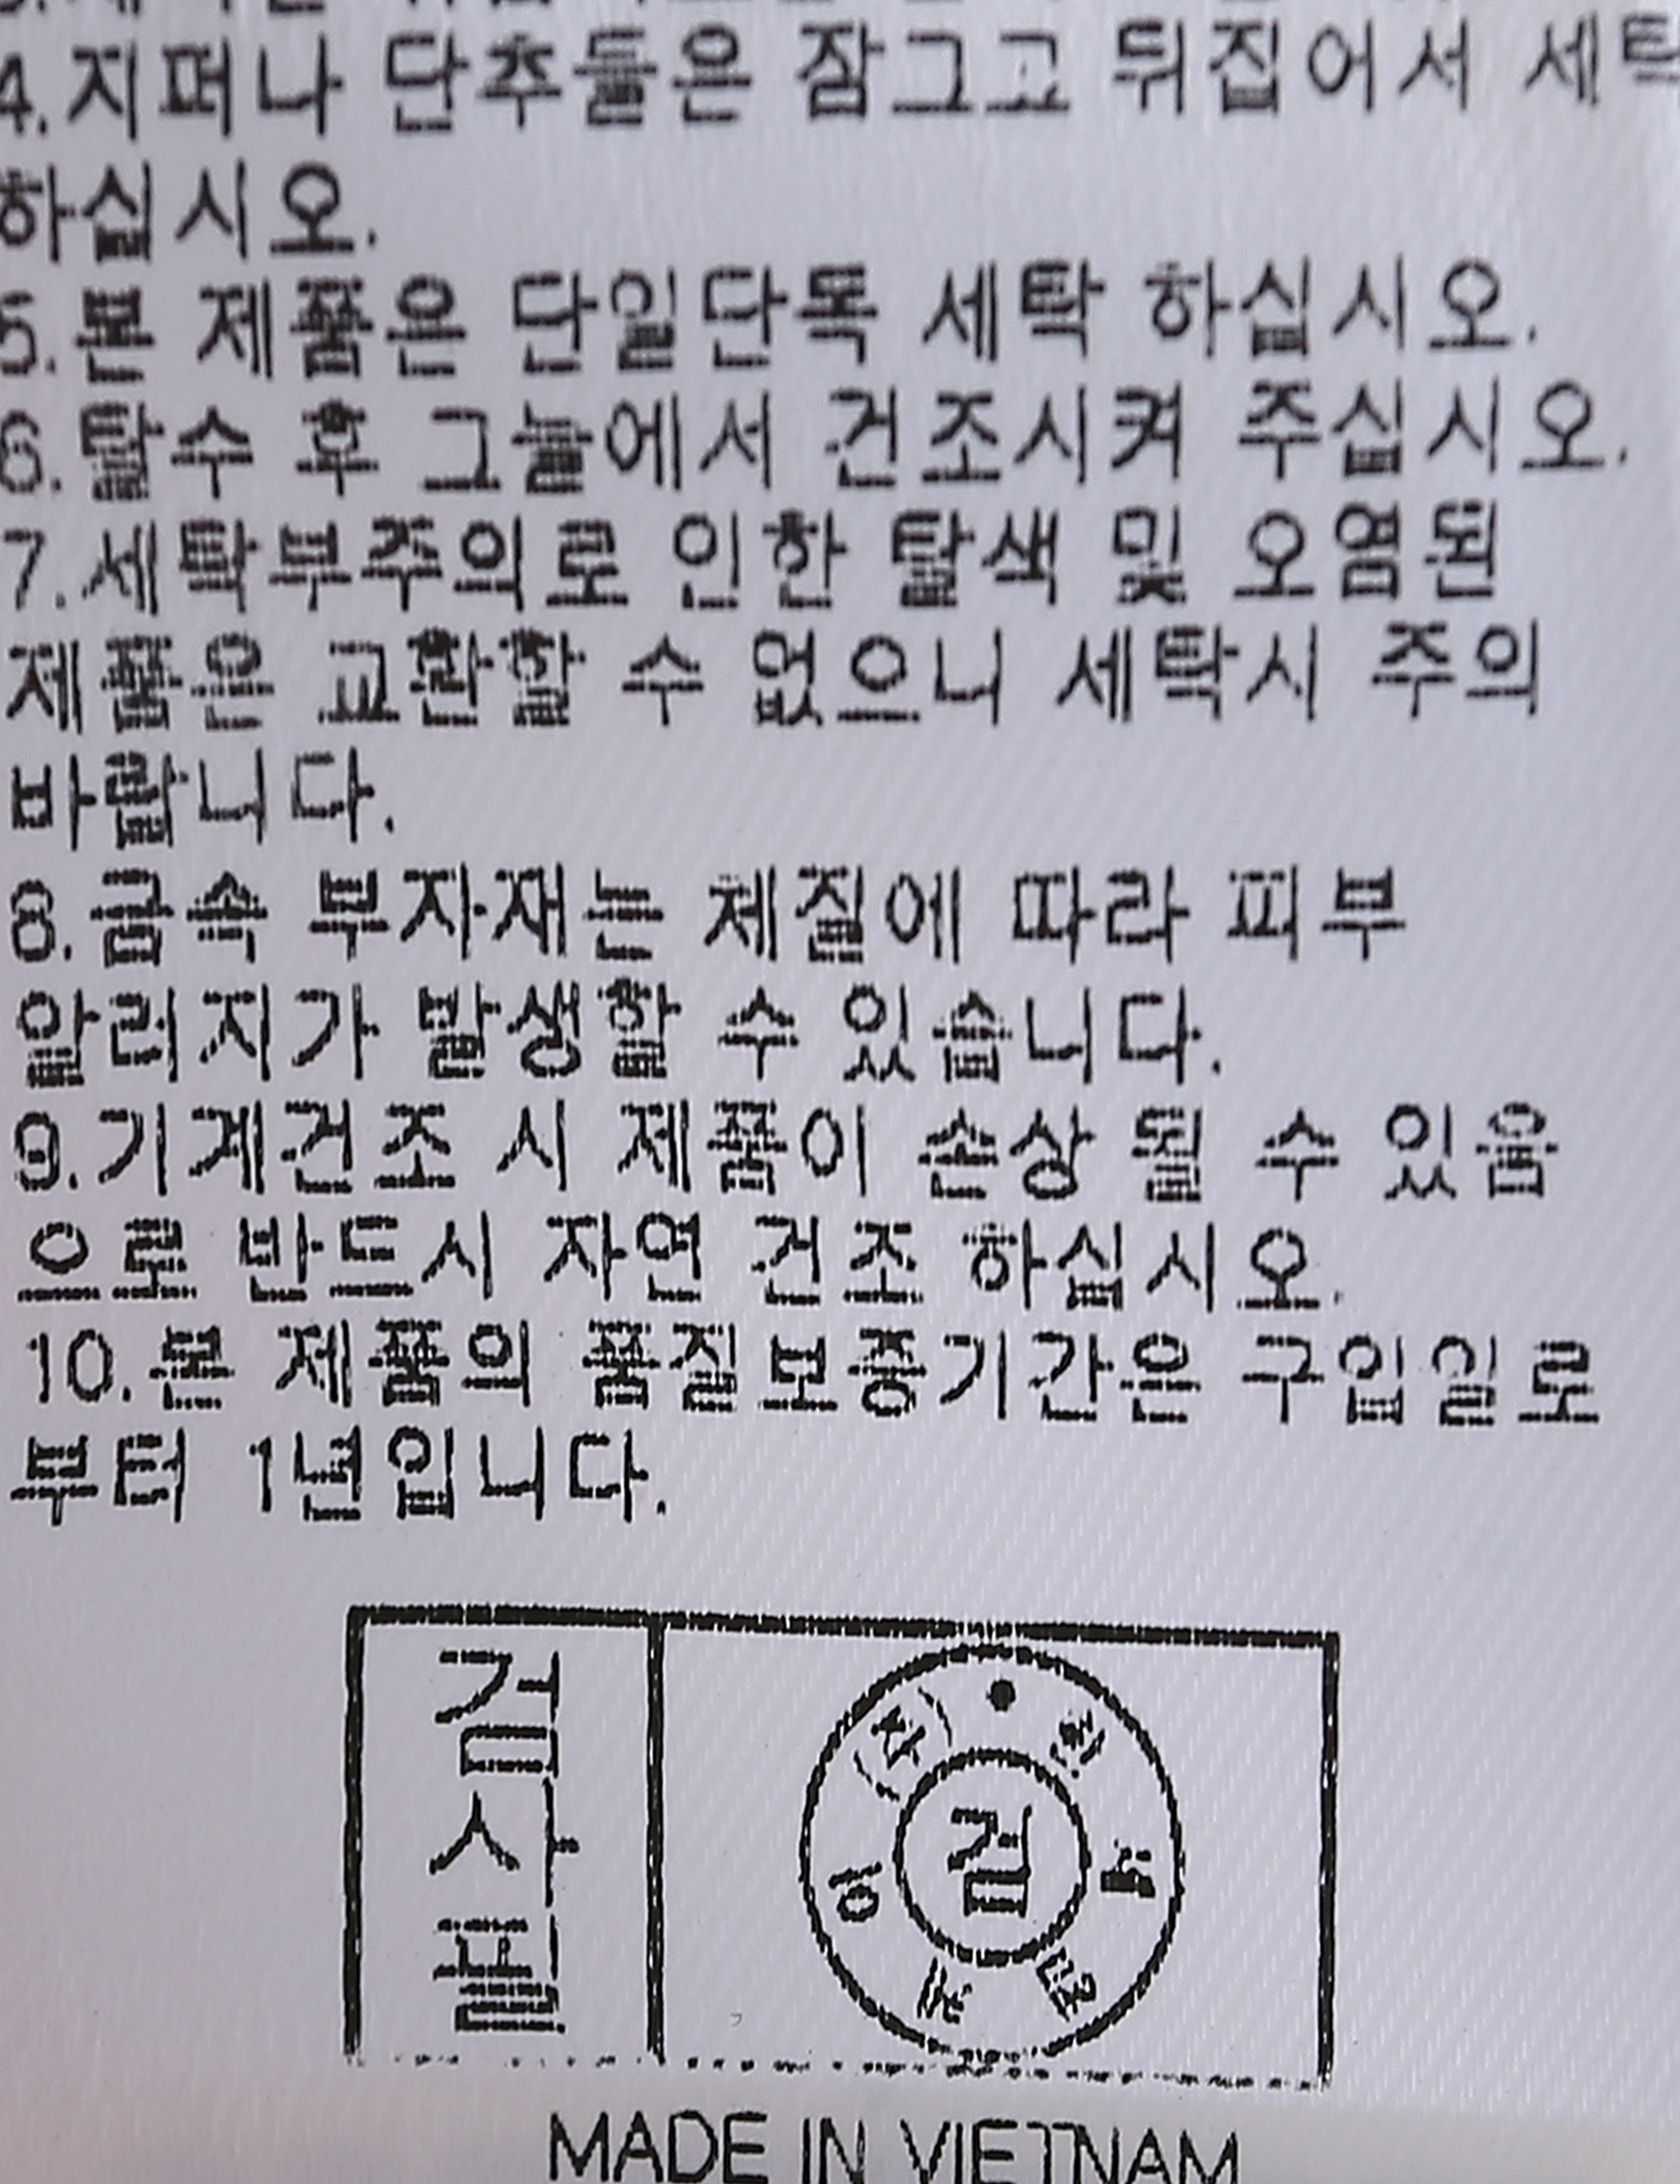 4.지퍼나 단추들은 잠그고 뒤집어서 세탁
하십시오.
5.본 제품은 단일단독 세탁 하십시오.
6.탈수 후 그늘에서 건조시켜 주십시오.
7.세탁부주의로 인한 탈색 및 오염된
제품은 교환할 수 없으니 세탁시 주의
바랍니다.
8.금속 부자재는 체질에 따라 피부
알러지가 발생할 수 있습니다.
9.기계건조 시 제품이 손상 될 수 있음
으로 반드시 자연 건조 하십시오.
10.본 제품의 품질보증기간은 구입일로
부터 1년입니다.
검사필
검
MADE IN VIETNAM